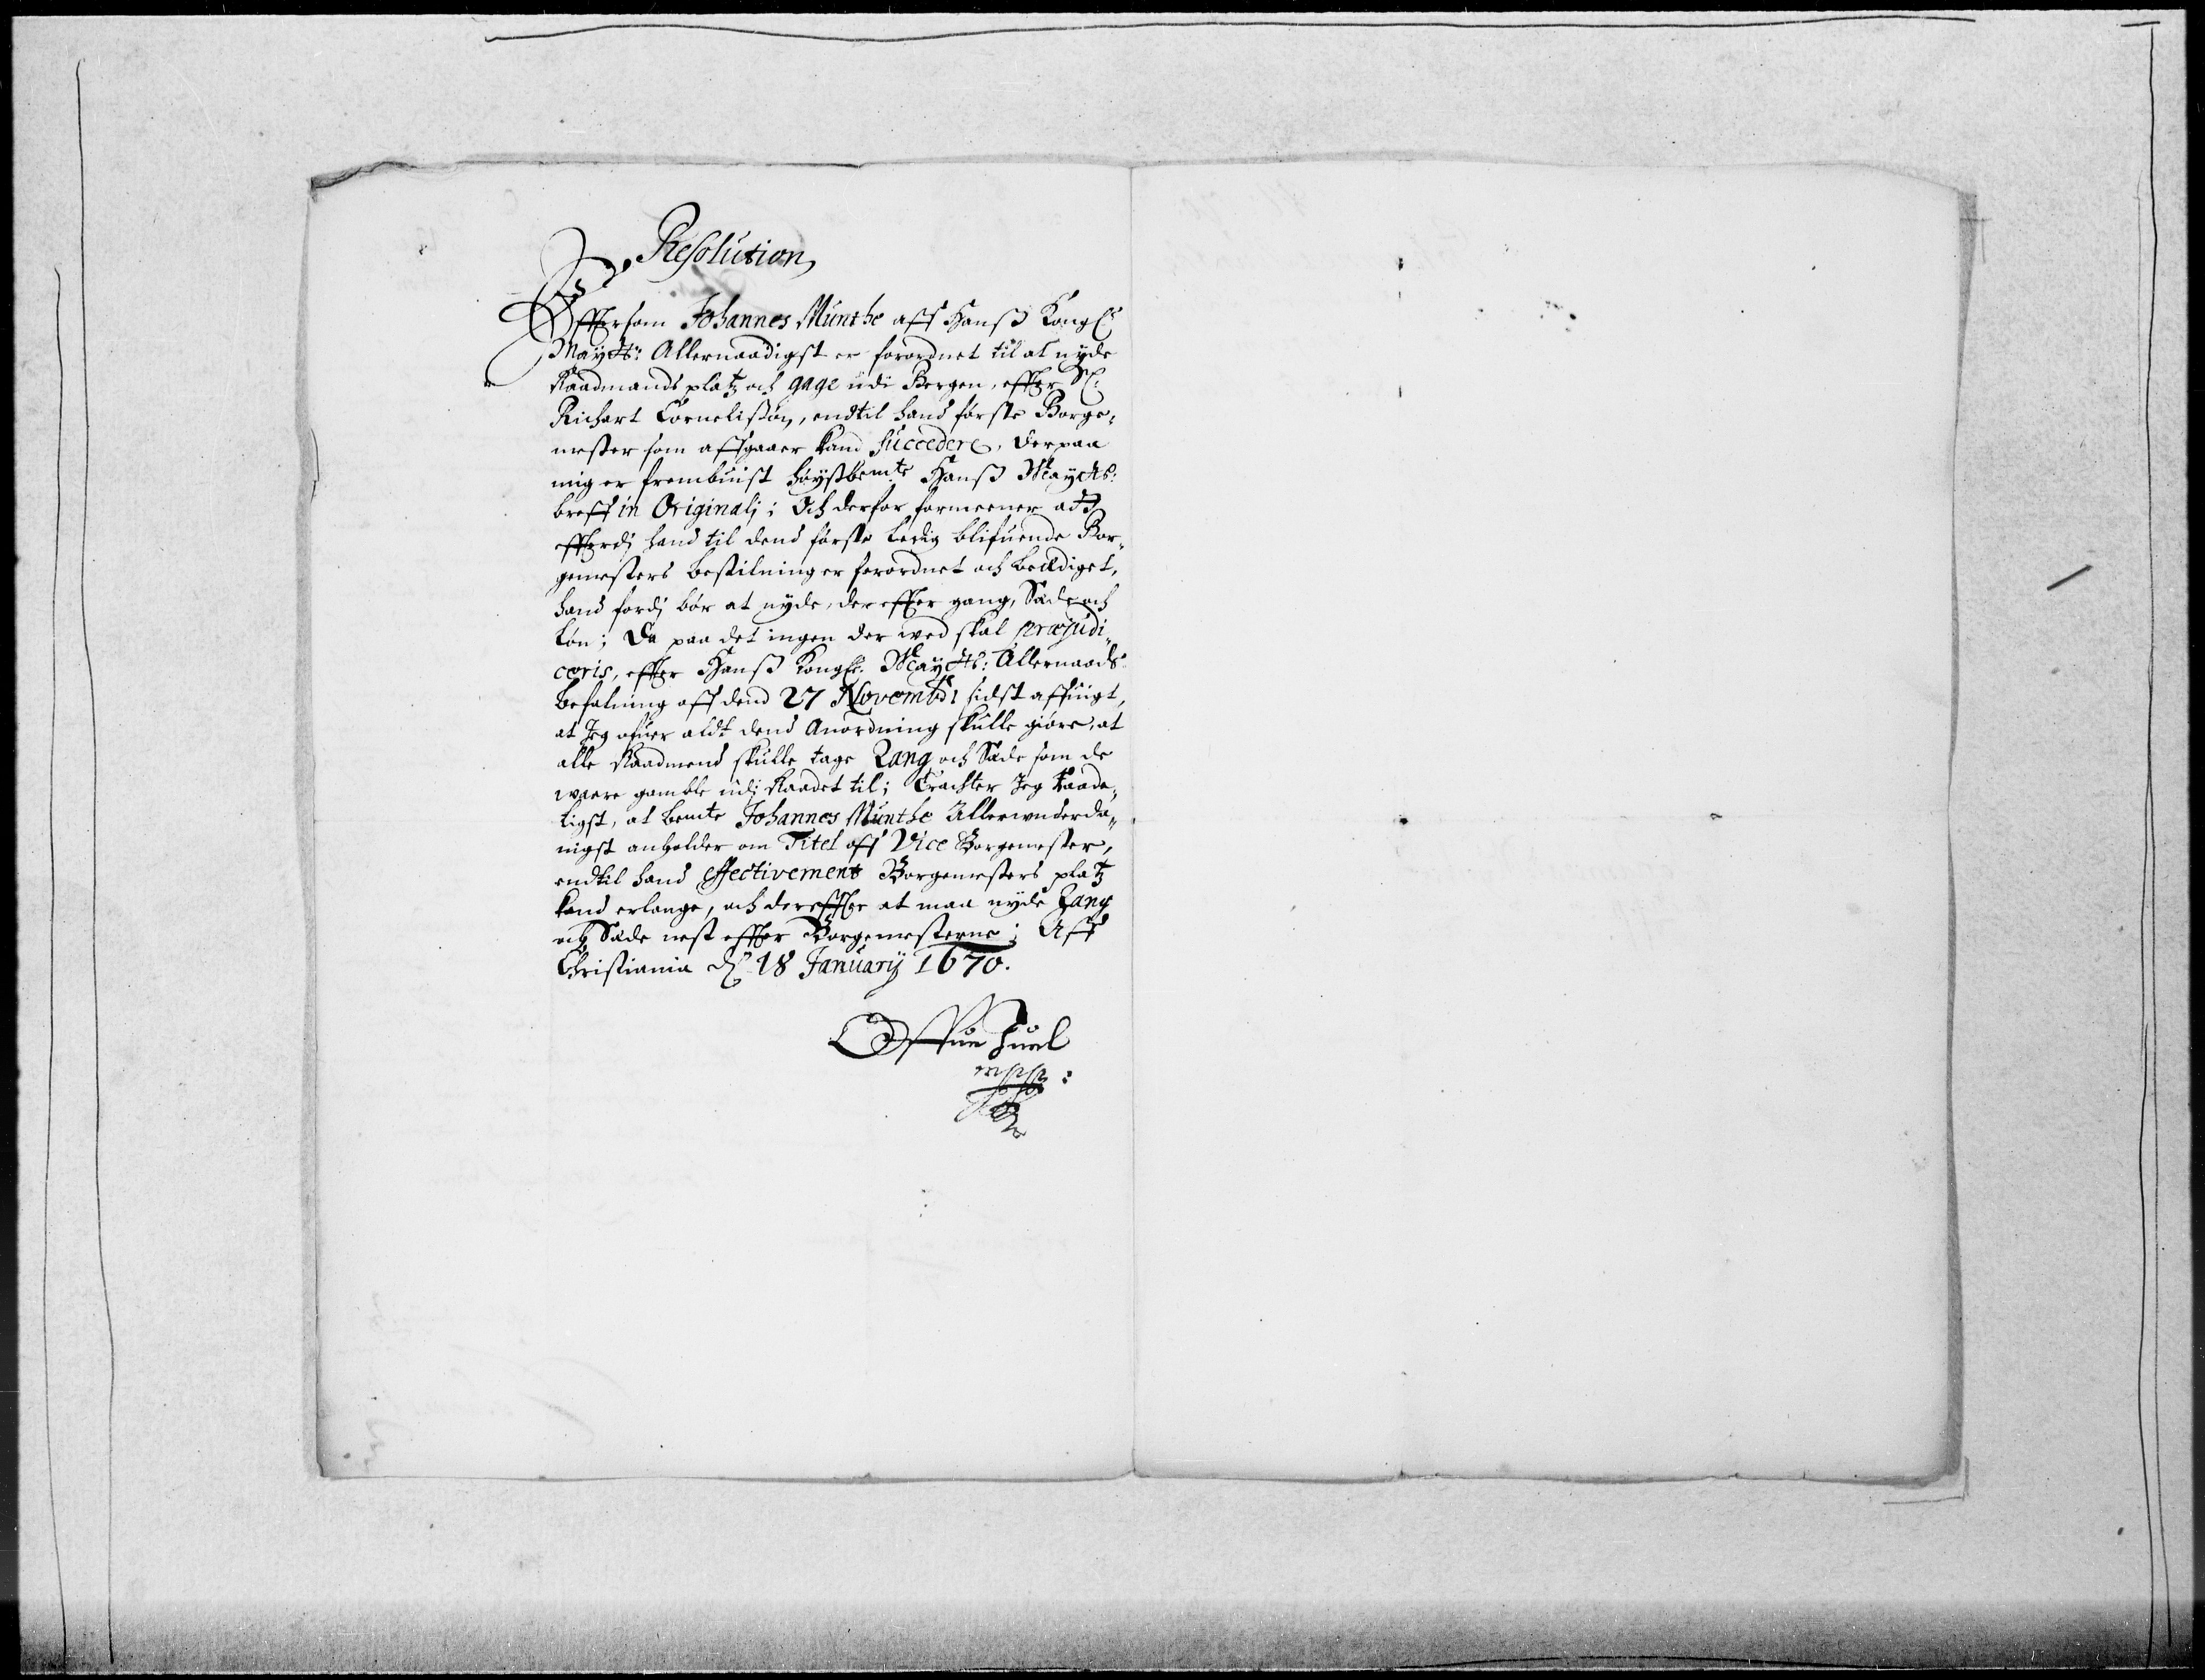 Resolution,
Efftersom Johannes Munthe aff Hanß Kongl:
Maytts: Allernaadigst er forordnet til at nyde
Raadmands platz och gage udi Bergen, effter Sl:
Richart Cornelißøn, endtil hand første Borge„
mester som affgaaer kand succedere, derpaa
mig er frembuist høystbemte Hanß Maytts:
breff in Originalj; Och derfor formeener att
effterdj hand til dend første ledig blifuende Bor„
gemesters bestilning er forordnet och beædiget,
hand fordj bør at nyde, dereffter gang, Sæde och
løn; Da paa det ingen der wed skal præjudi„
ceris, effter Hanß Kongl: Maytts: Allernaads:
befalning aff dend 27 Novembr: sidst affuigt,
at Jeg ofuer aldt dend Anordning skulle giøre, at
alle Raadmend skulle tage Rang och Sæde som de
waare gamble udj Raadet til; Tracter Jeg Raade„
ligst, at bemte Johannes Munthe Allerunderda„
nigst anholder om Titel aff Vice Borgemester,
endtil hand effectivement Borgemesters platz
kand erlange, och dereffter at maa nyde Rang
och Sæde nest effter Borgemesterne; Aff
Christiania dn: 18 Januarij 1670.
Offue Juel
mppp: